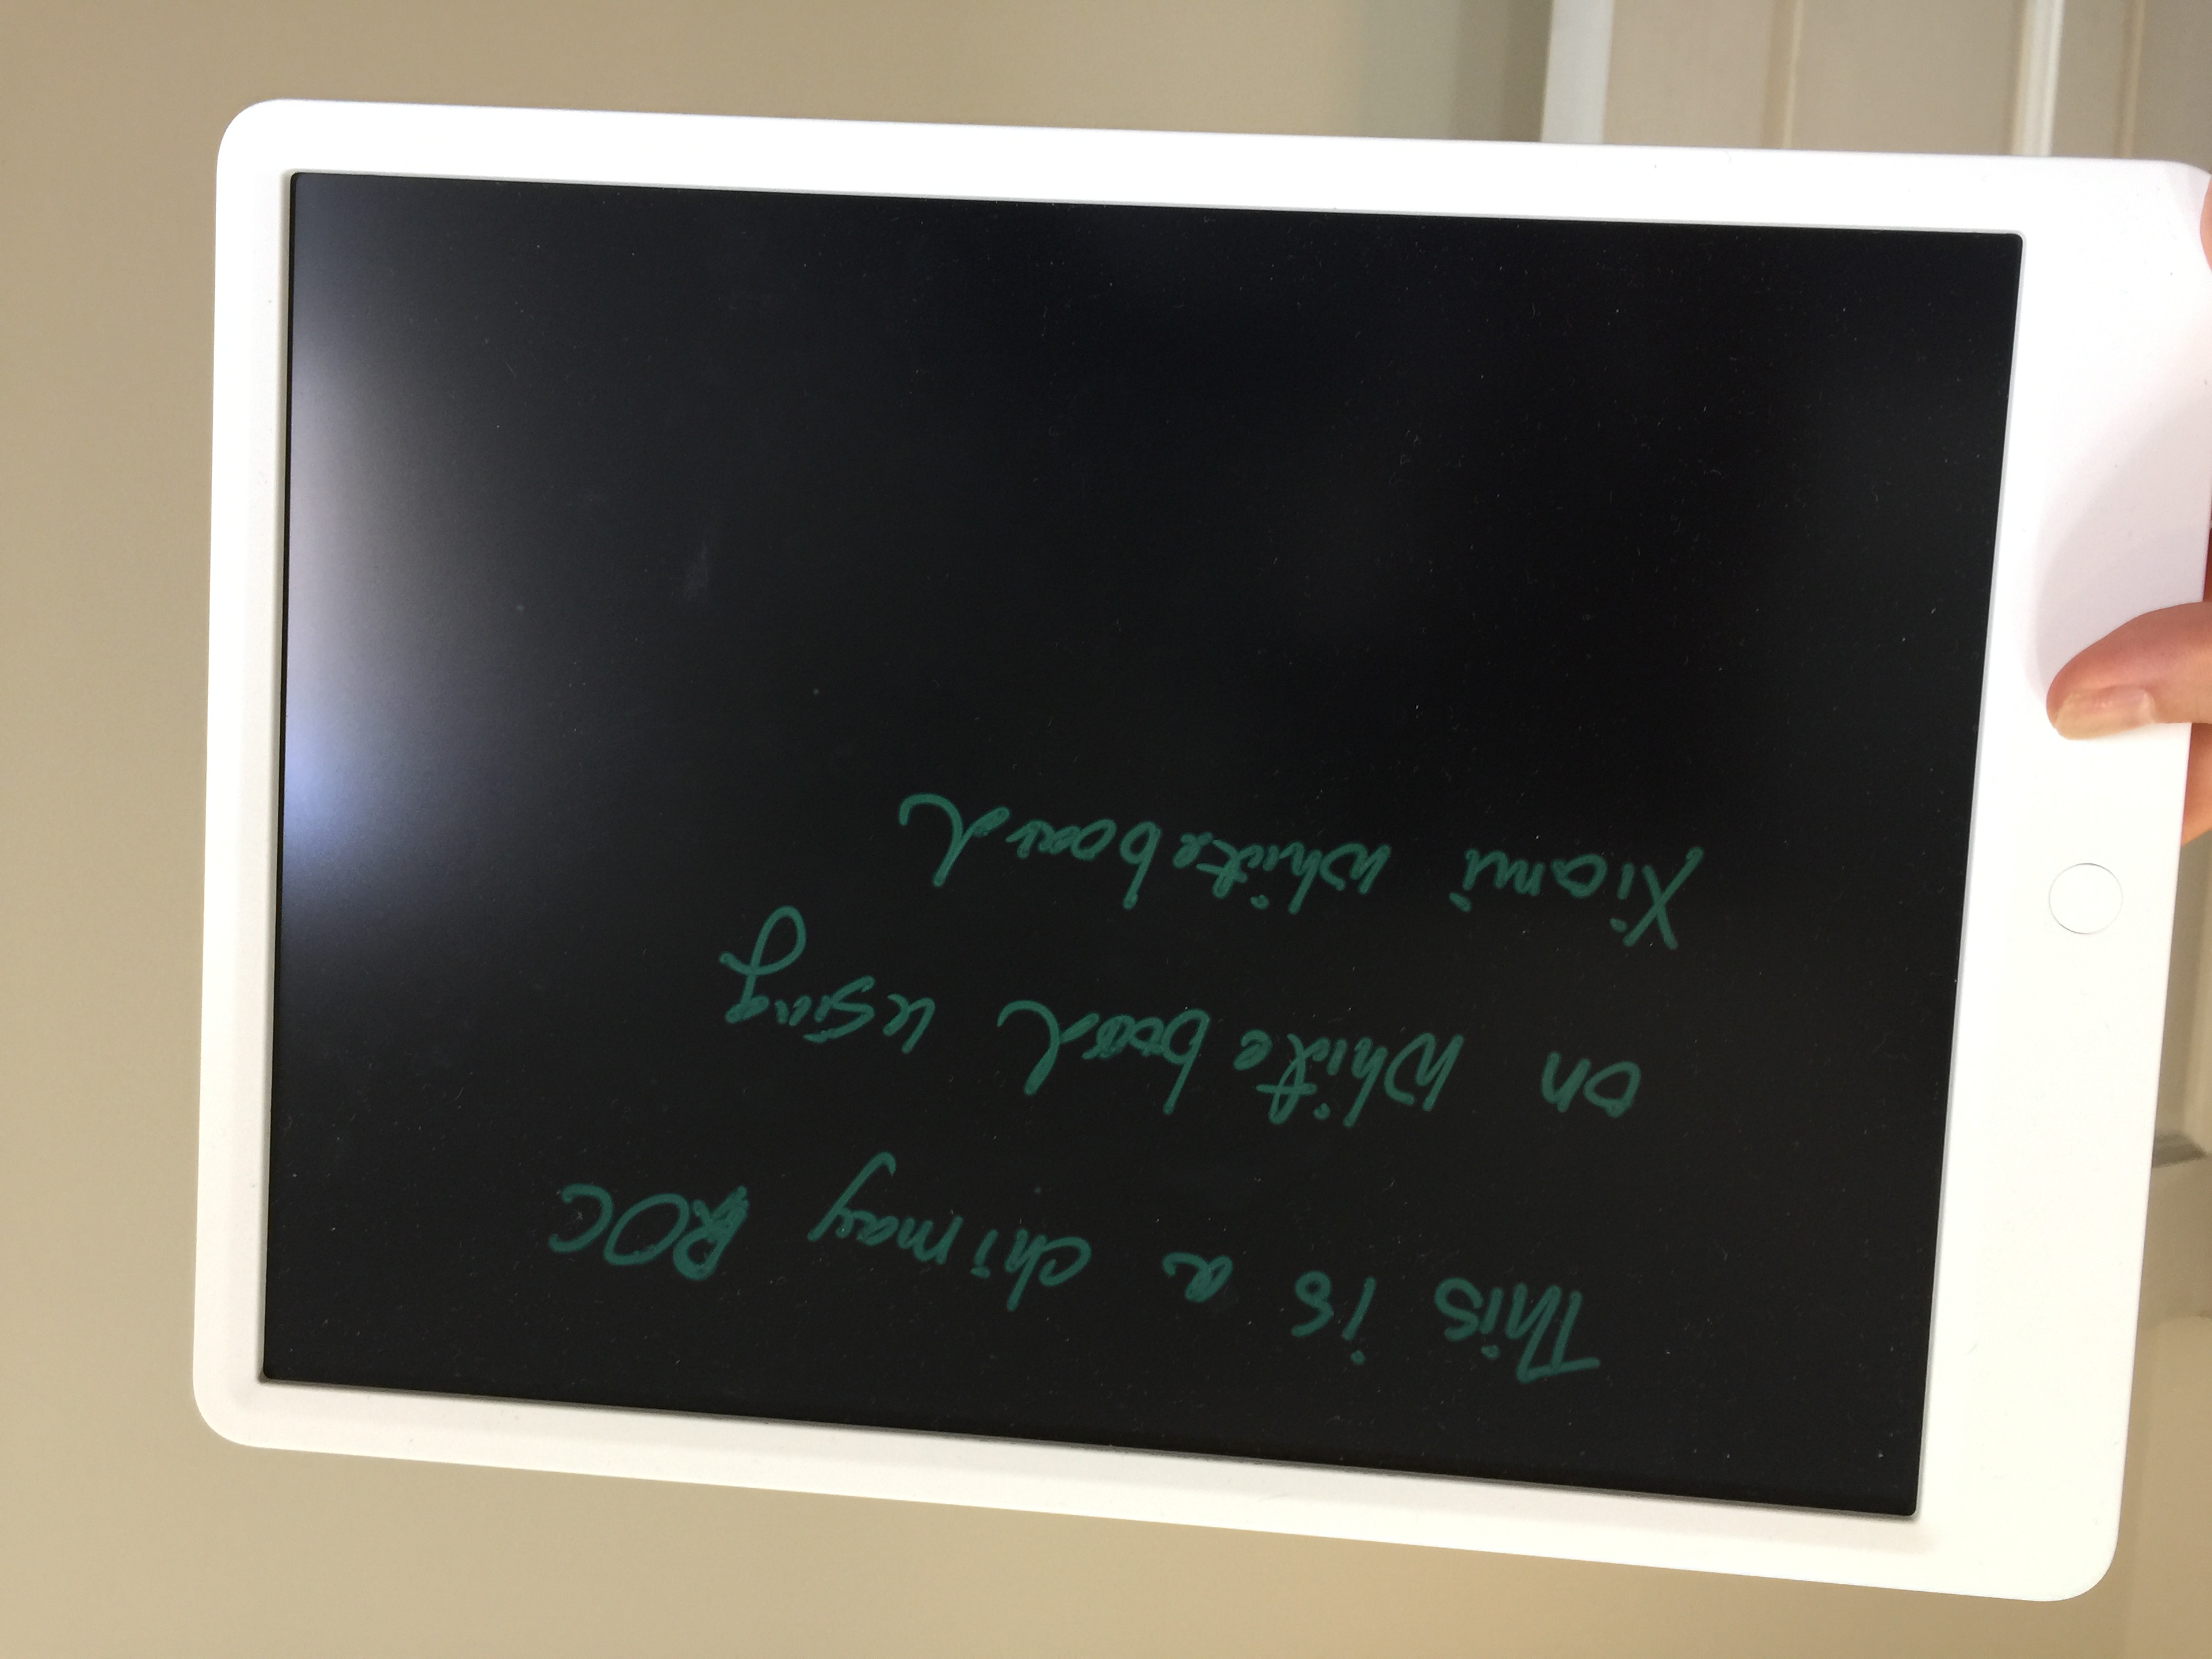 This is a chimay ROC
on whiteboard using
Xiami whiteboard